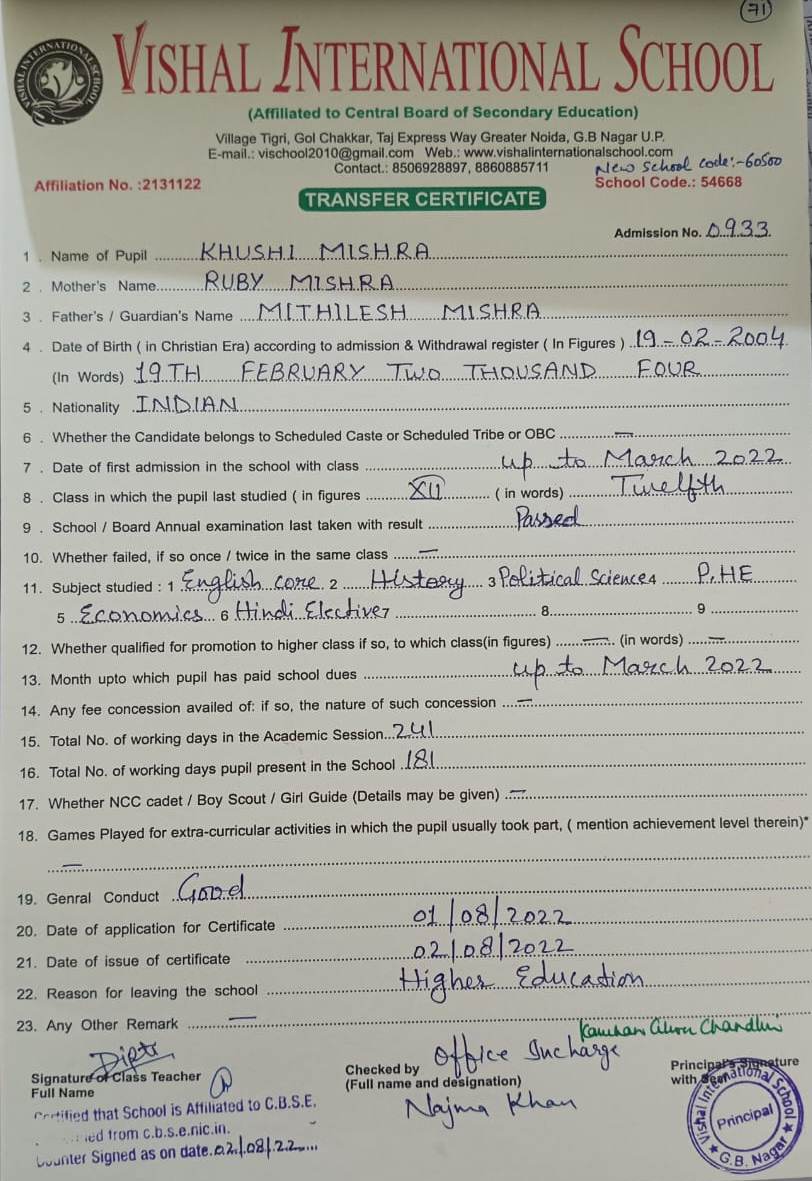 71
VISHAL INTERNATIONAL SCHOOL
(Affiliated to Central Board of Secondary Education)
Village Tigri, Gol Chakkar, Taj Express Way Greater Noida, G.B Nagar U.P.
E-mail.: vischool2010@gmail.com Web.: www.vishalinternationalschool.com
Contact.: 8506928897, 8860885711
New School code:-60500
Affiliation No. :2131122 School Code.: 54668
TRANSFER CERTIFICATE
Admission No. 0933.
1 . Name of Pupil KHUSHI MISHRA
2 . Mother's Name RUBY MISHRA
3 . Father's / Guardian's Name MITHILESH MISHRA
4 . Date of Birth ( in Christian Era) according to admission & Withdrawal register ( In Figures ) 19-02-2004
(In Words) 19TH FEBRUARY TWO THOUSAND FOUR
5 . Nationality INDIAN
6 . Whether the Candidate belongs to Scheduled Caste or Scheduled Tribe or OBC —
7 . Date of first admission in the school with class up to March 2022
8 . Class in which the pupil last studied ( in figures XII ( in words) Twelfth
9 . School / Board Annual examination last taken with result Passed
10. Whether failed, if so once / twice in the same class —
11. Subject studied : 1 English core 2 History 3 Political Science 4 P.HE
5 Economics 6 Hindi Elective 7 8 9
12. Whether qualified for promotion to higher class if so, to which class(in figures) — (in words) —
13. Month upto which pupil has paid school dues up to March 2022
14. Any fee concession availed of: if so, the nature of such concession —
15. Total No. of working days in the Academic Session 241
16. Total No. of working days pupil present in the School 181
17. Whether NCC cadet / Boy Scout / Girl Guide (Details may be given) —
18. Games Played for extra-curricular activities in which the pupil usually took part, ( mention achievement level therein)*
—
19. Genral Conduct Good
20. Date of application for Certificate 01/08/2022
21. Date of issue of certificate 02/08/2022
22. Reason for leaving the school Higher Education
23. Any Other Remark —
Signature of Class Teacher
Full Name
Checked by Office Incharge
(Full name and designation)
Najma Khan
Principal's Signature
with Seal
Vishal International School
Principal
G.B. Nagar
Certified that School is Affiliated to C.B.S.E.
from c.b.s.e.nic.in.
Counter Signed as on date. 02/08/22